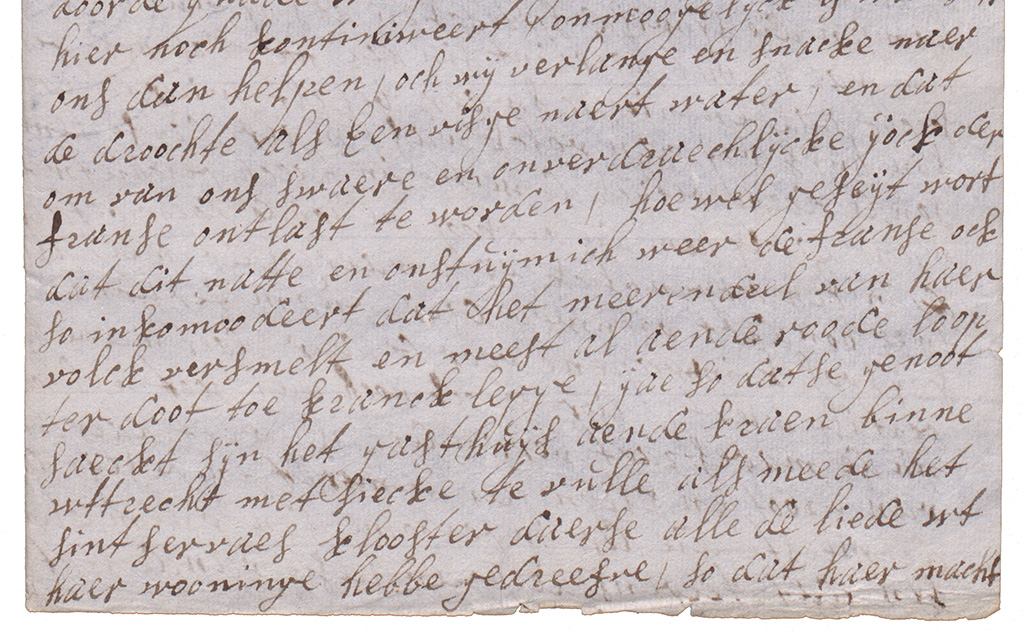 hier noch kontiniweert onmoogelijck
ons dan helpen, och wij verlange en snacke naer
de droochte als een visge naert water, en dat
om van ons swaere en onverdraechlijcke jock der
franse ontlast te worden, hoe wel geseijt wort
dat dit natte en onstuijmich weer de franse ock
so inkomoodeert dat het meerendeel van haer
volck versmelt en meest al aende roode loop
ter doot toe kranck legge, jae so datse genoot
saeckt sijn het gasthuijs aende kraen binne
wttrecht met siecke te vulle als meede het
sint servaes klooster daerse alle de liede wt
haer wooninge hebbe gedreefve, so dat haer macht